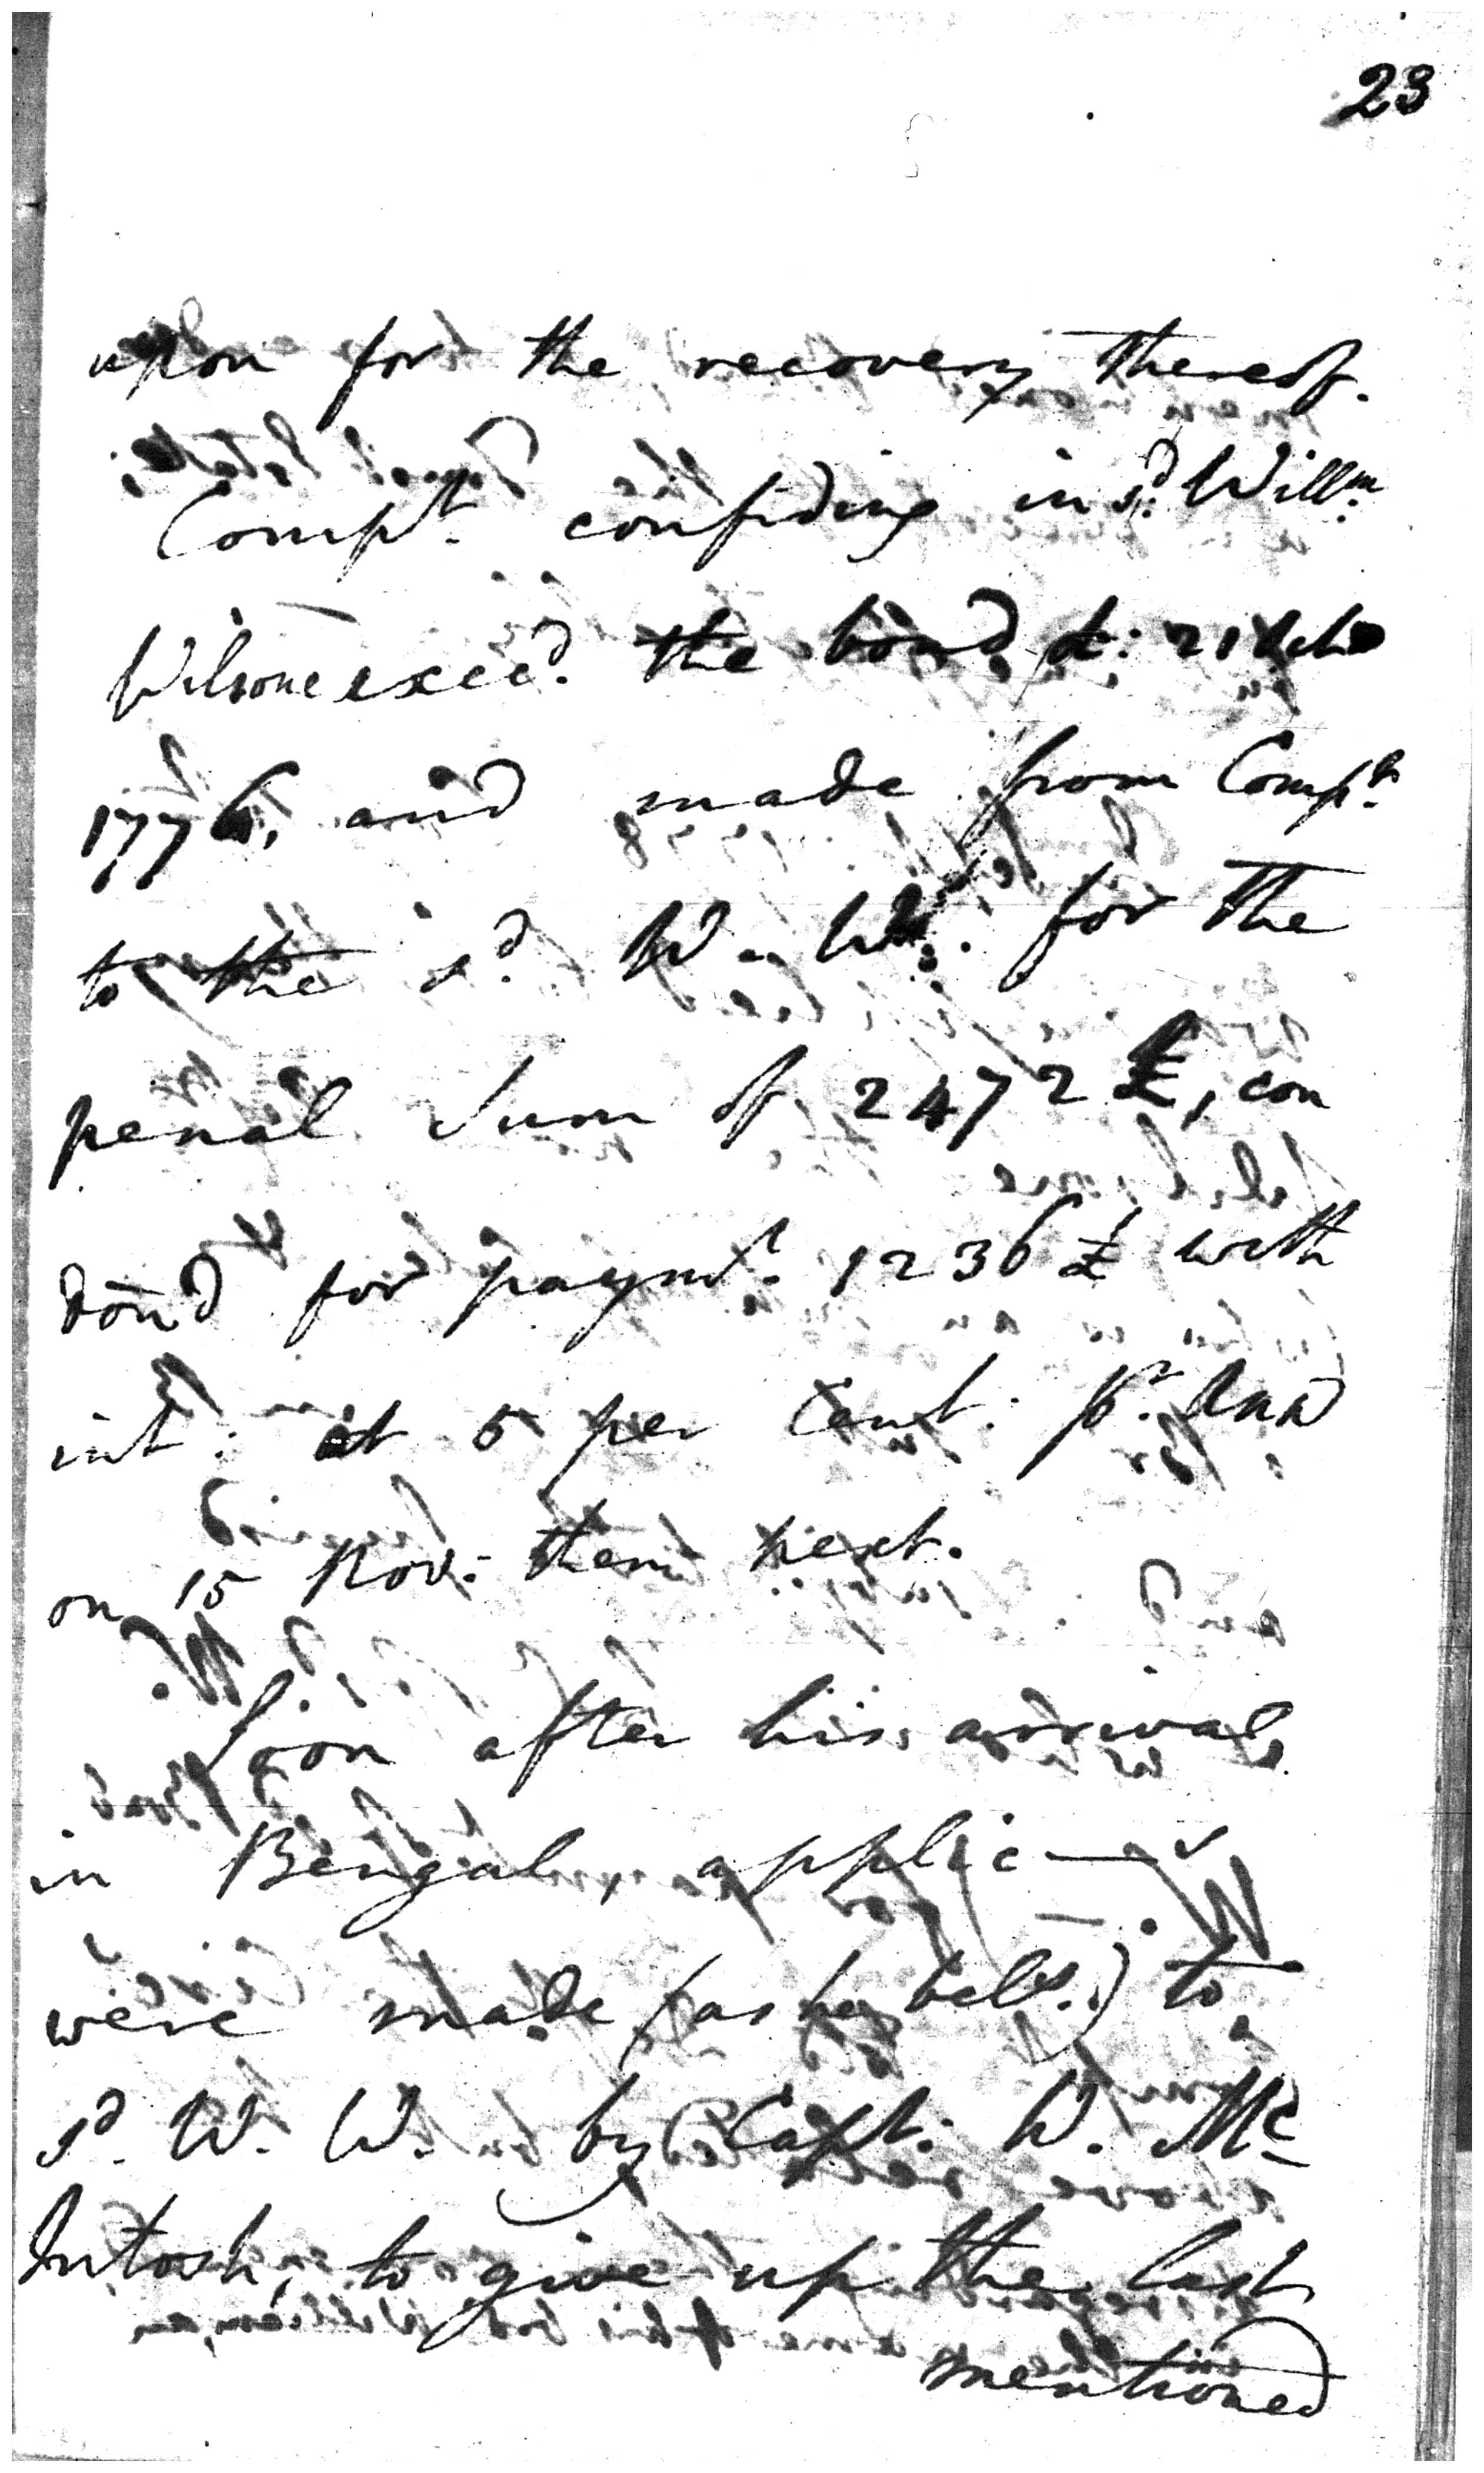 23
upon for the recovery thereof.
Compt. confiding in sd. Willm.
Wilsone exec'd. the bond dt: 21
1776, and made from Compt.
to the sd. W. W. for the
penal Sum of 2472 £, con
dōn'd for paymt. 1236 £ with
int: at 5 per Cent: pr. Ann
on 15 Nov: then next.
Soon after his arrival
in Bengal, applic—s
were made (as he bels.) to
sd. W. W. by Capt. W. Mc
Intosh, to give up the last
mentioned